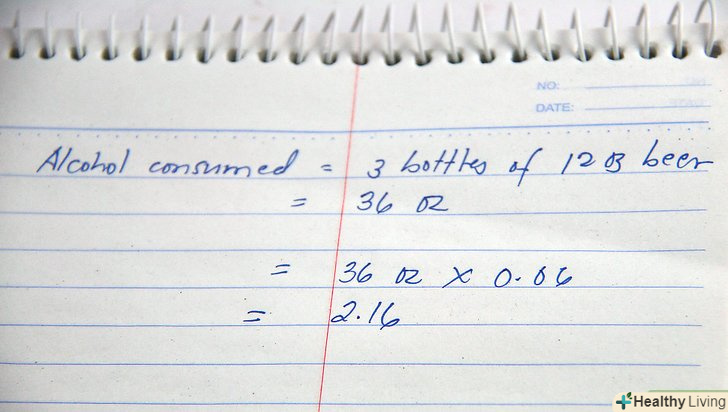 NO:
DATE:
Alcohol consumed = 3 bottles of 12 oz beer
= 36 oz
= 36 oz x 0.06
= 2.16
Healthy Living